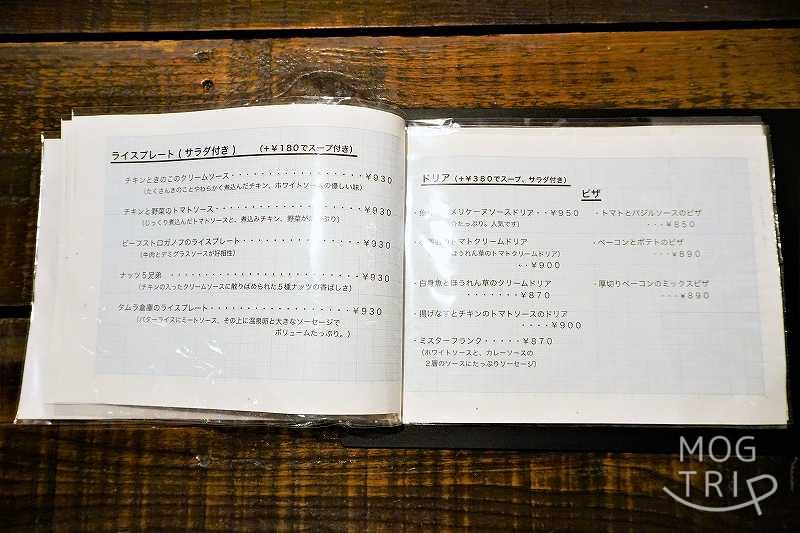 ライスプレート(サラダ付き) (+¥180でスープ付き)
チキンときのこのクリームソース・・・・・・・・・・・・・・・・¥930
(たくさんきのことやわらかく煮込んだチキン、ホワイトソースの優しい味)
チキンと野菜のトマトソース・・・・・・・・・・・・・・・・・・¥930
(じっくり煮込んだトマトソースと、煮込みチキン、野菜が
ビーフストロガノフのライスプレート・・・・・・・・・・・・・・¥930
(牛肉とデミグラスソースが好相性)
ナッツ5兄弟・・・・・・・・・・・・・・・・・・・・・・・・・¥930
(チキンの入ったクリームソースに散りばめられた5種ナッツの香ばしさ)
タムラ倉庫のライスプレート・・・・・・・・・・・・・・・・・・¥930
(バターライスにミートソース、その上に温泉卵と大きなソーセージで
ボリュームたっぷり。)
ドリア(+¥380でスープ、サラダ付き)
・ メリケーヌソースドリア・・¥950
たっぷり。人気です)
・ トマトクリームドリア
ほうれん草のトマトクリームドリア)
・・¥900
・白身魚とほうれん草のクリームドリア
・・・・・・・・¥870
・揚げなすとチキンのトマトソースのドリア
・・・・¥900
・ミスターフランク・・・・・¥870
(ホワイトソースと、カレーソースの
2層のソースにたっぷりソーセージ)
ピザ
・トマトとバジルソースのピザ
・・・¥850
・ベーコンとポテトのピザ
・・・¥890
・厚切りベーコンのミックスピザ
・・・¥890
MOG
TRIP